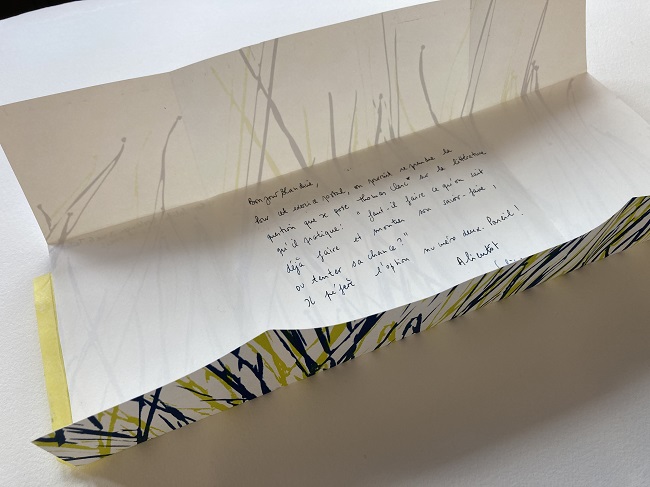 Bonjour Blandine,
Pour cet exercice postal, on pourrait reprendre la
question que se pose Thomas Clerc* sur la littérature
qu'il pratique : "faut-il faire ce qu'on sait
déjà faire et montrer son savoir-faire,
ou tenter sa chance ?"
Il préfère l'option numéro deux. Pareil !
A bientôt